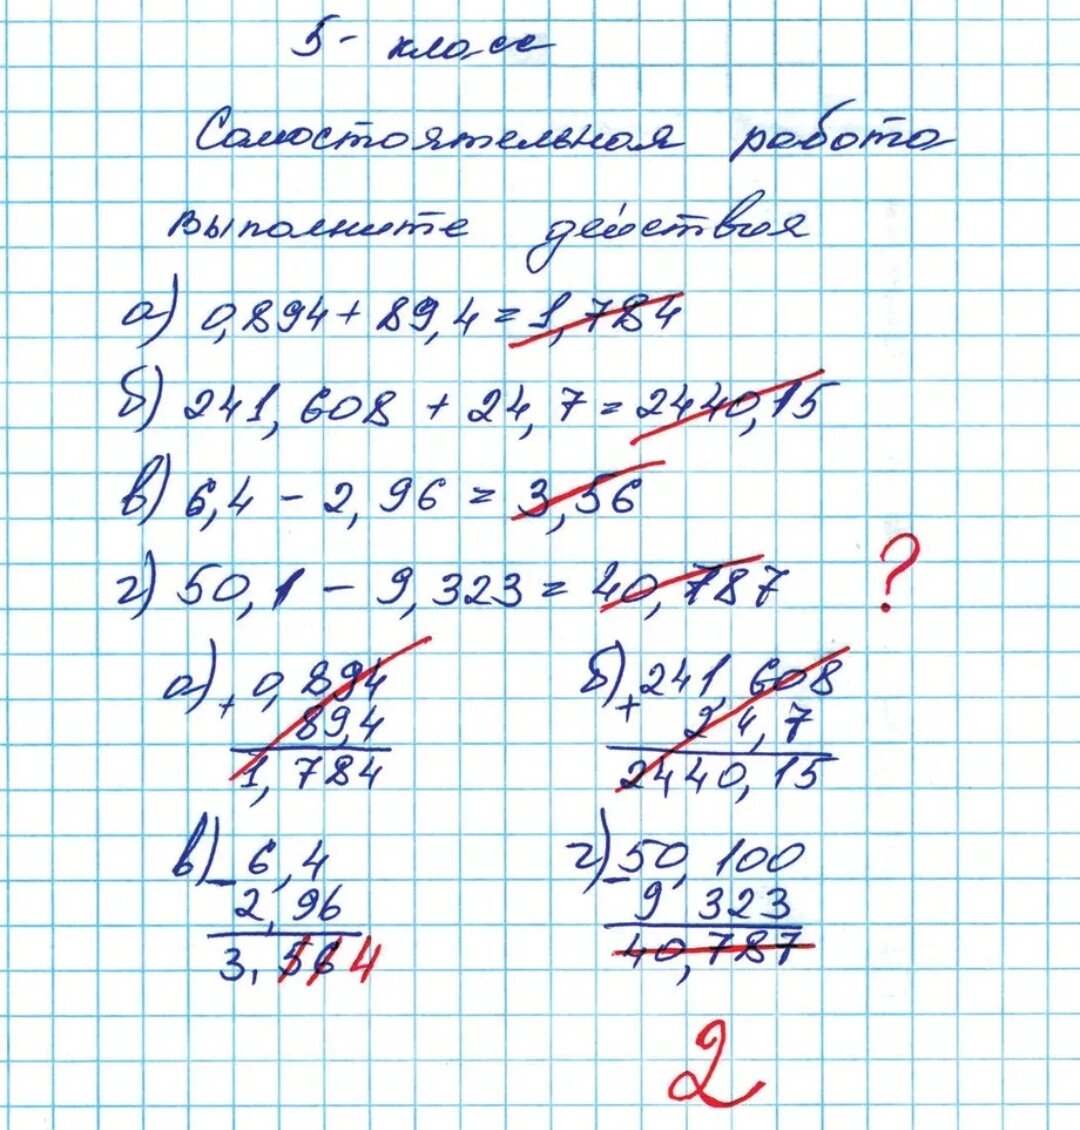 5- класс
Самостоятельная работа
Выполните действия
а) 0,894 + 89,4 = 1,784
б) 241,608 + 24,7 = 2440,15
в) 6,4 - 2,96 = 3,56
г) 50,1 - 9,323 = 40,787
?
а) + 0,894
89,4
1,784
б) + 241,608
24,7
2440,15
в) - 6,4
2,96
3,56 4
г) - 50,100
9 323
40,787
2